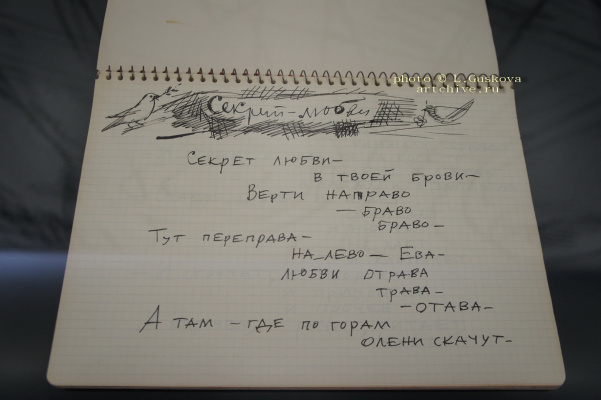 photo © L.Guskova
artchive.ru
Секрет-любви
Секрет любви–
в твоей брови–
Верти направо
– браво
браво –
Тут переправа–
на_лево – Ева–
любви отрава
трава–
– отава–
А там – где по горам
олени скачут–